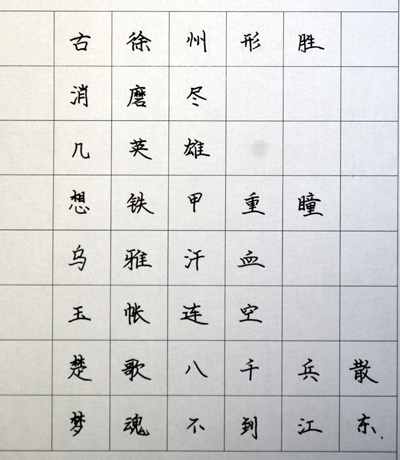 古徐州形胜
消磨尽
几英雄
想铁甲重瞳
乌雅汗血
玉帐连空
楚歌八千兵散
梦魂不到江东.